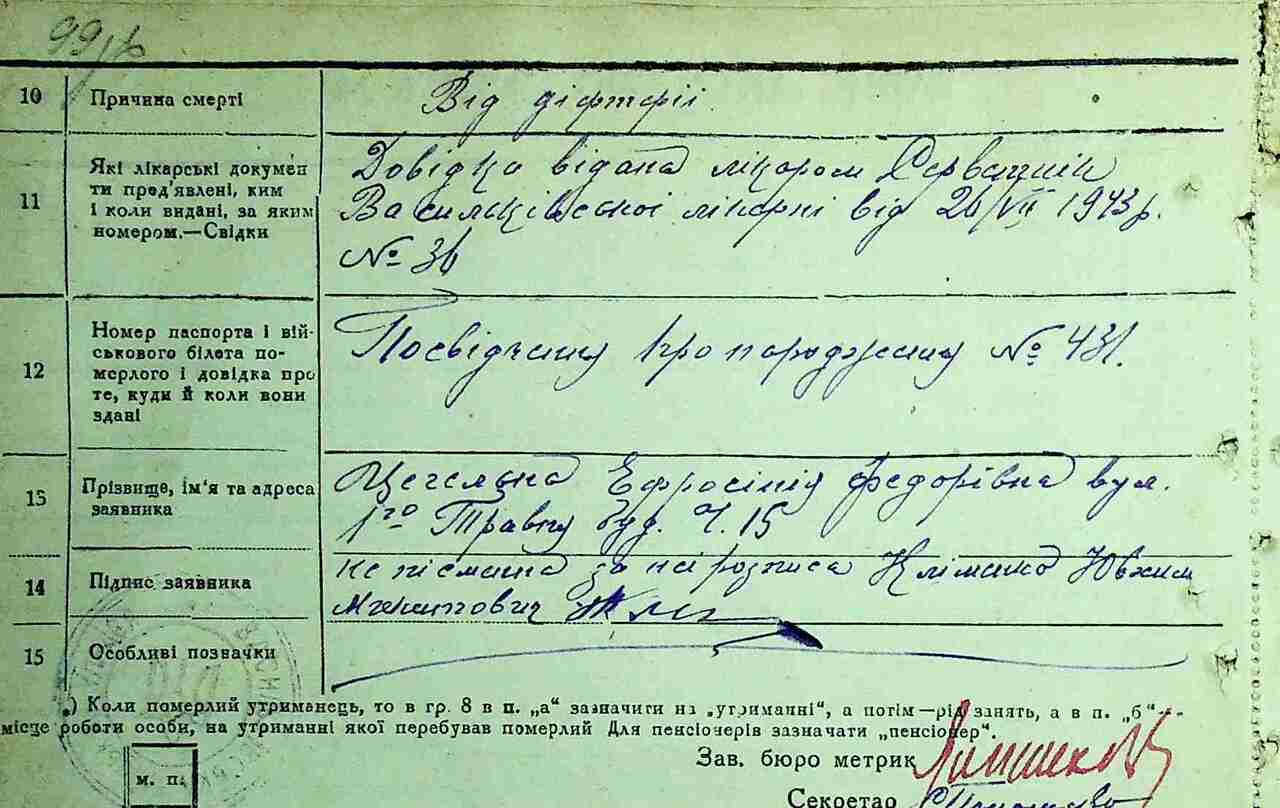 99
10 Причина смерті Від діфтерії.
11
Які лікарські докумен
ти пред'явлені, ким
і коли видані, за яким
номером.—Свідки
Довідка відана лікором
Васильківської лікарні від 26/VII 1943 р.
№ 36
12
Номер паспорта і вій-
ськового білета по-
мерлого і довідка про
те, куди й коли вони
здані
Посвідчення про народження № 431.
13
Прізвище, ім'я та адреса
заявника
Цегельна Ефросінія Федорівна вул.
1го Травня буд. Ч. 15
14 Підпис заявника
не písьмена за неї розписа Клімацко Ювхим
Микитович
15 Особливі позвачки
*) Коли померлий утриманець, то в гр. 8 в п. „а" зазначити на „утриманні", а потім—рід занять, а в п. „б"—
місце роботи особи, на утриманні якої перебував померлий Для пенсіонерів зазначати „пенсіонер".
м. п.
Зав. бюро метрик
Секретар